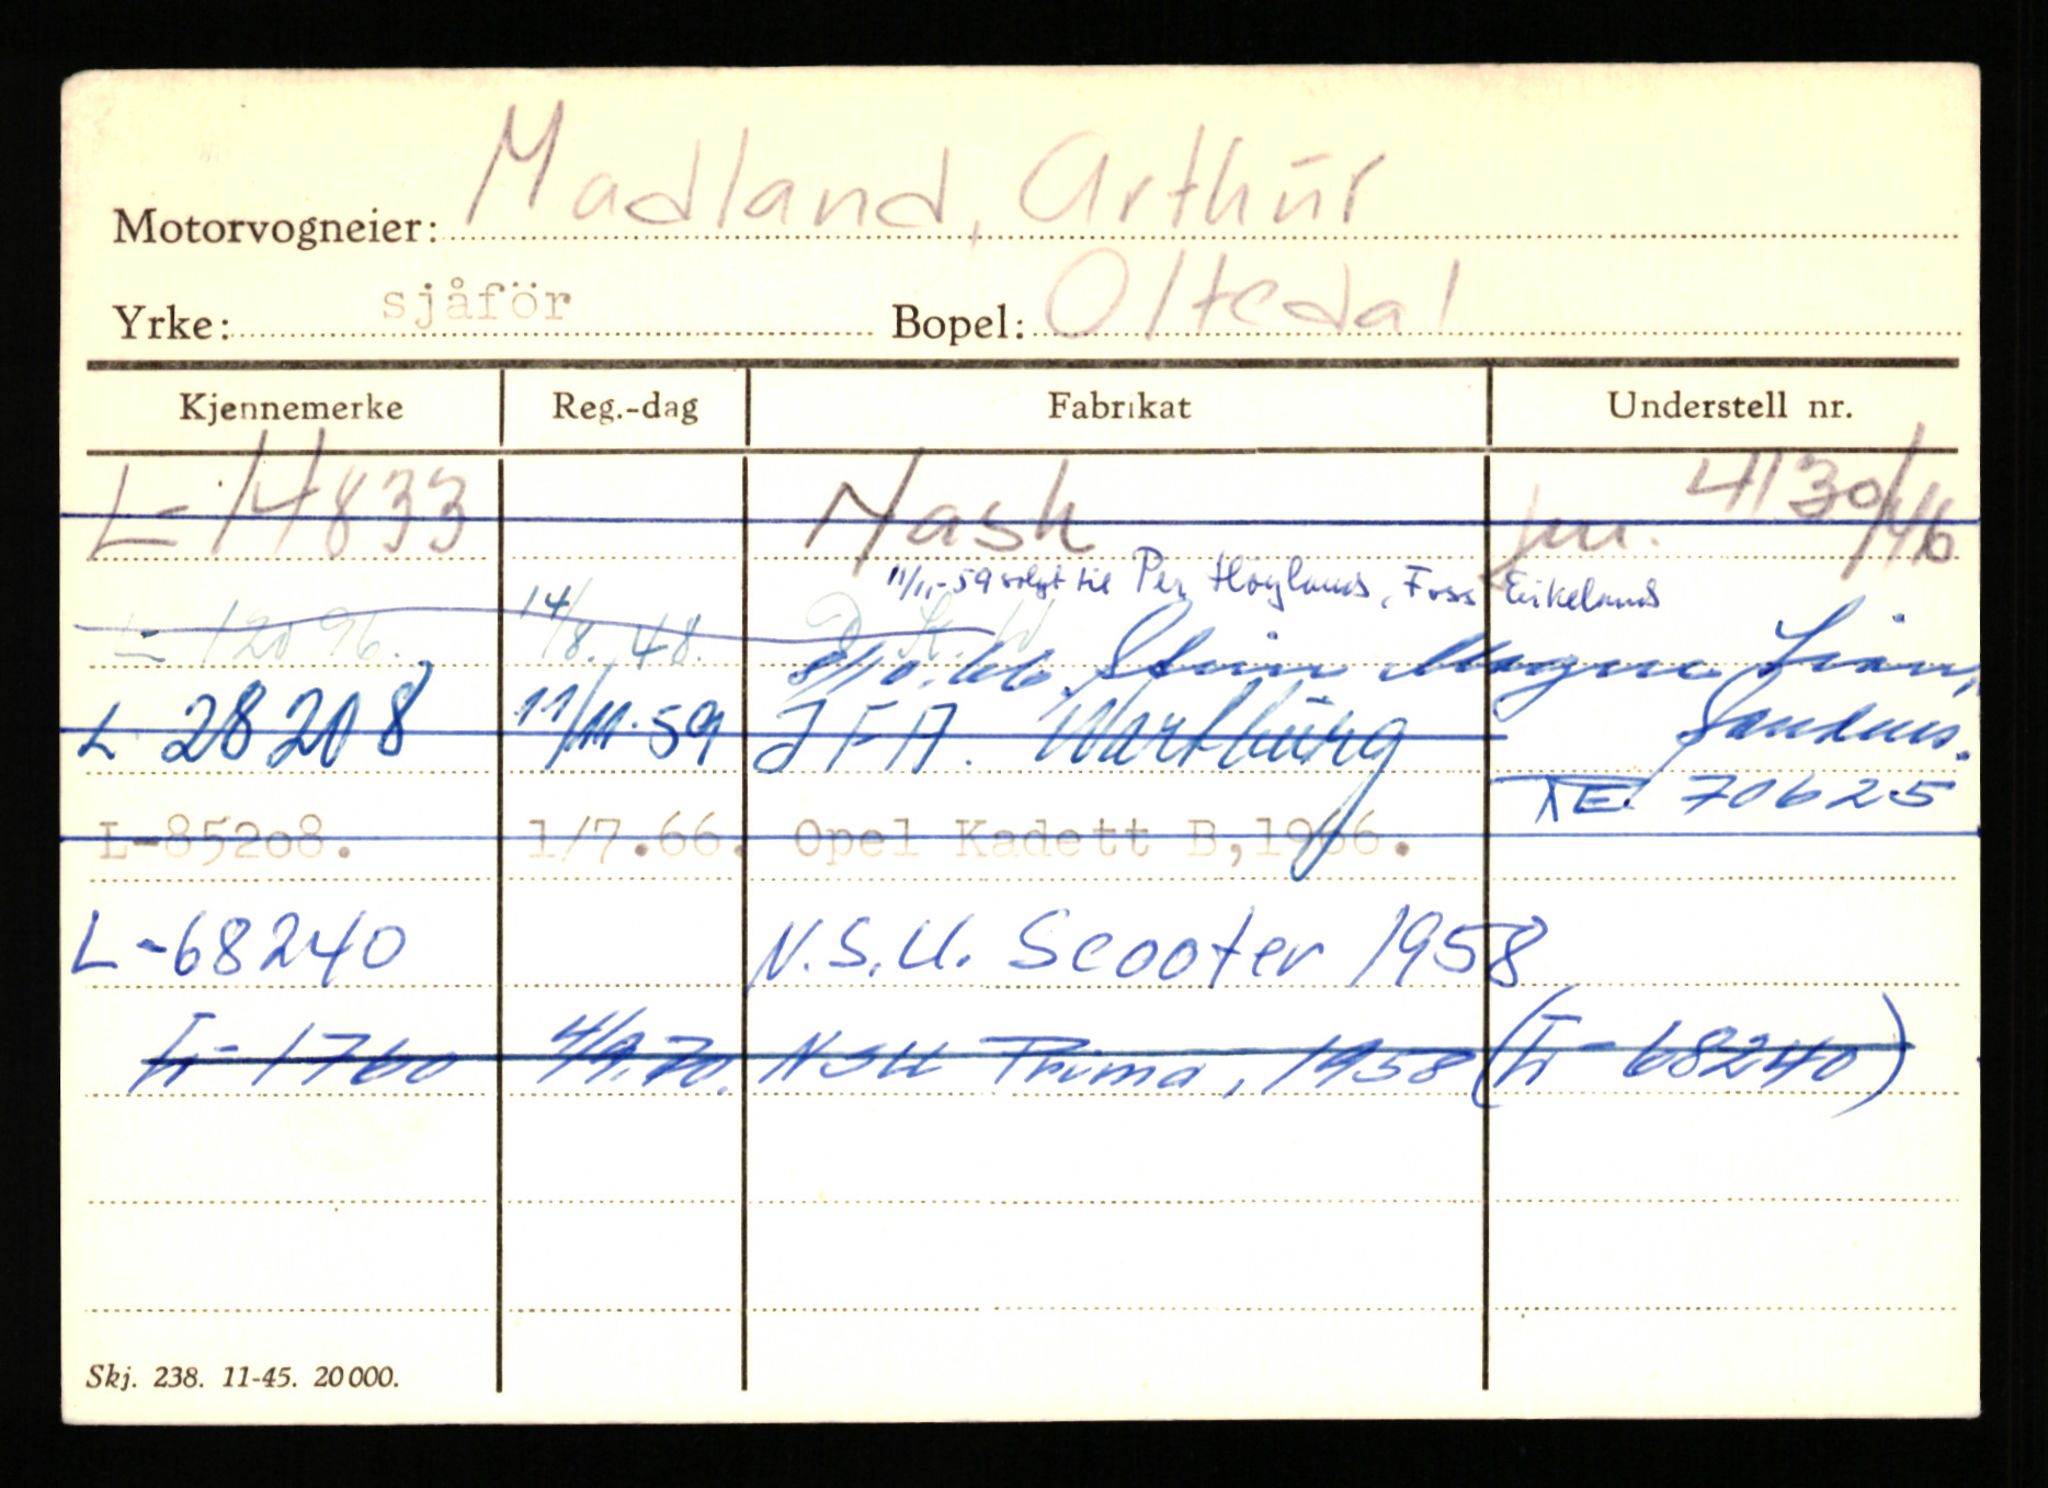 Motorvogneier: Madland, Arthur
Yrke: sjåför Bopel: Oltedal
Kjennemerke Reg.-dag Fabrikat Understell nr.
L-14833 Nash 4130/46
11/11-59 solgt til Per Høyland, Foss Eikeland
L-12096. 14/8. 48. D.K.W
8/10.66 Stein Magne
L 28208 11/11.59 I F A. Wartburg Sandnes.
TE. 70625
L-85208. 1/7.66. Opel Kadett B,1966.
L-68240 N.S.U. Scooter 1958
L-1760 4/9.70. NSU Prima, 1958 (L-68240)
Skj. 238. 11-45. 20 000.